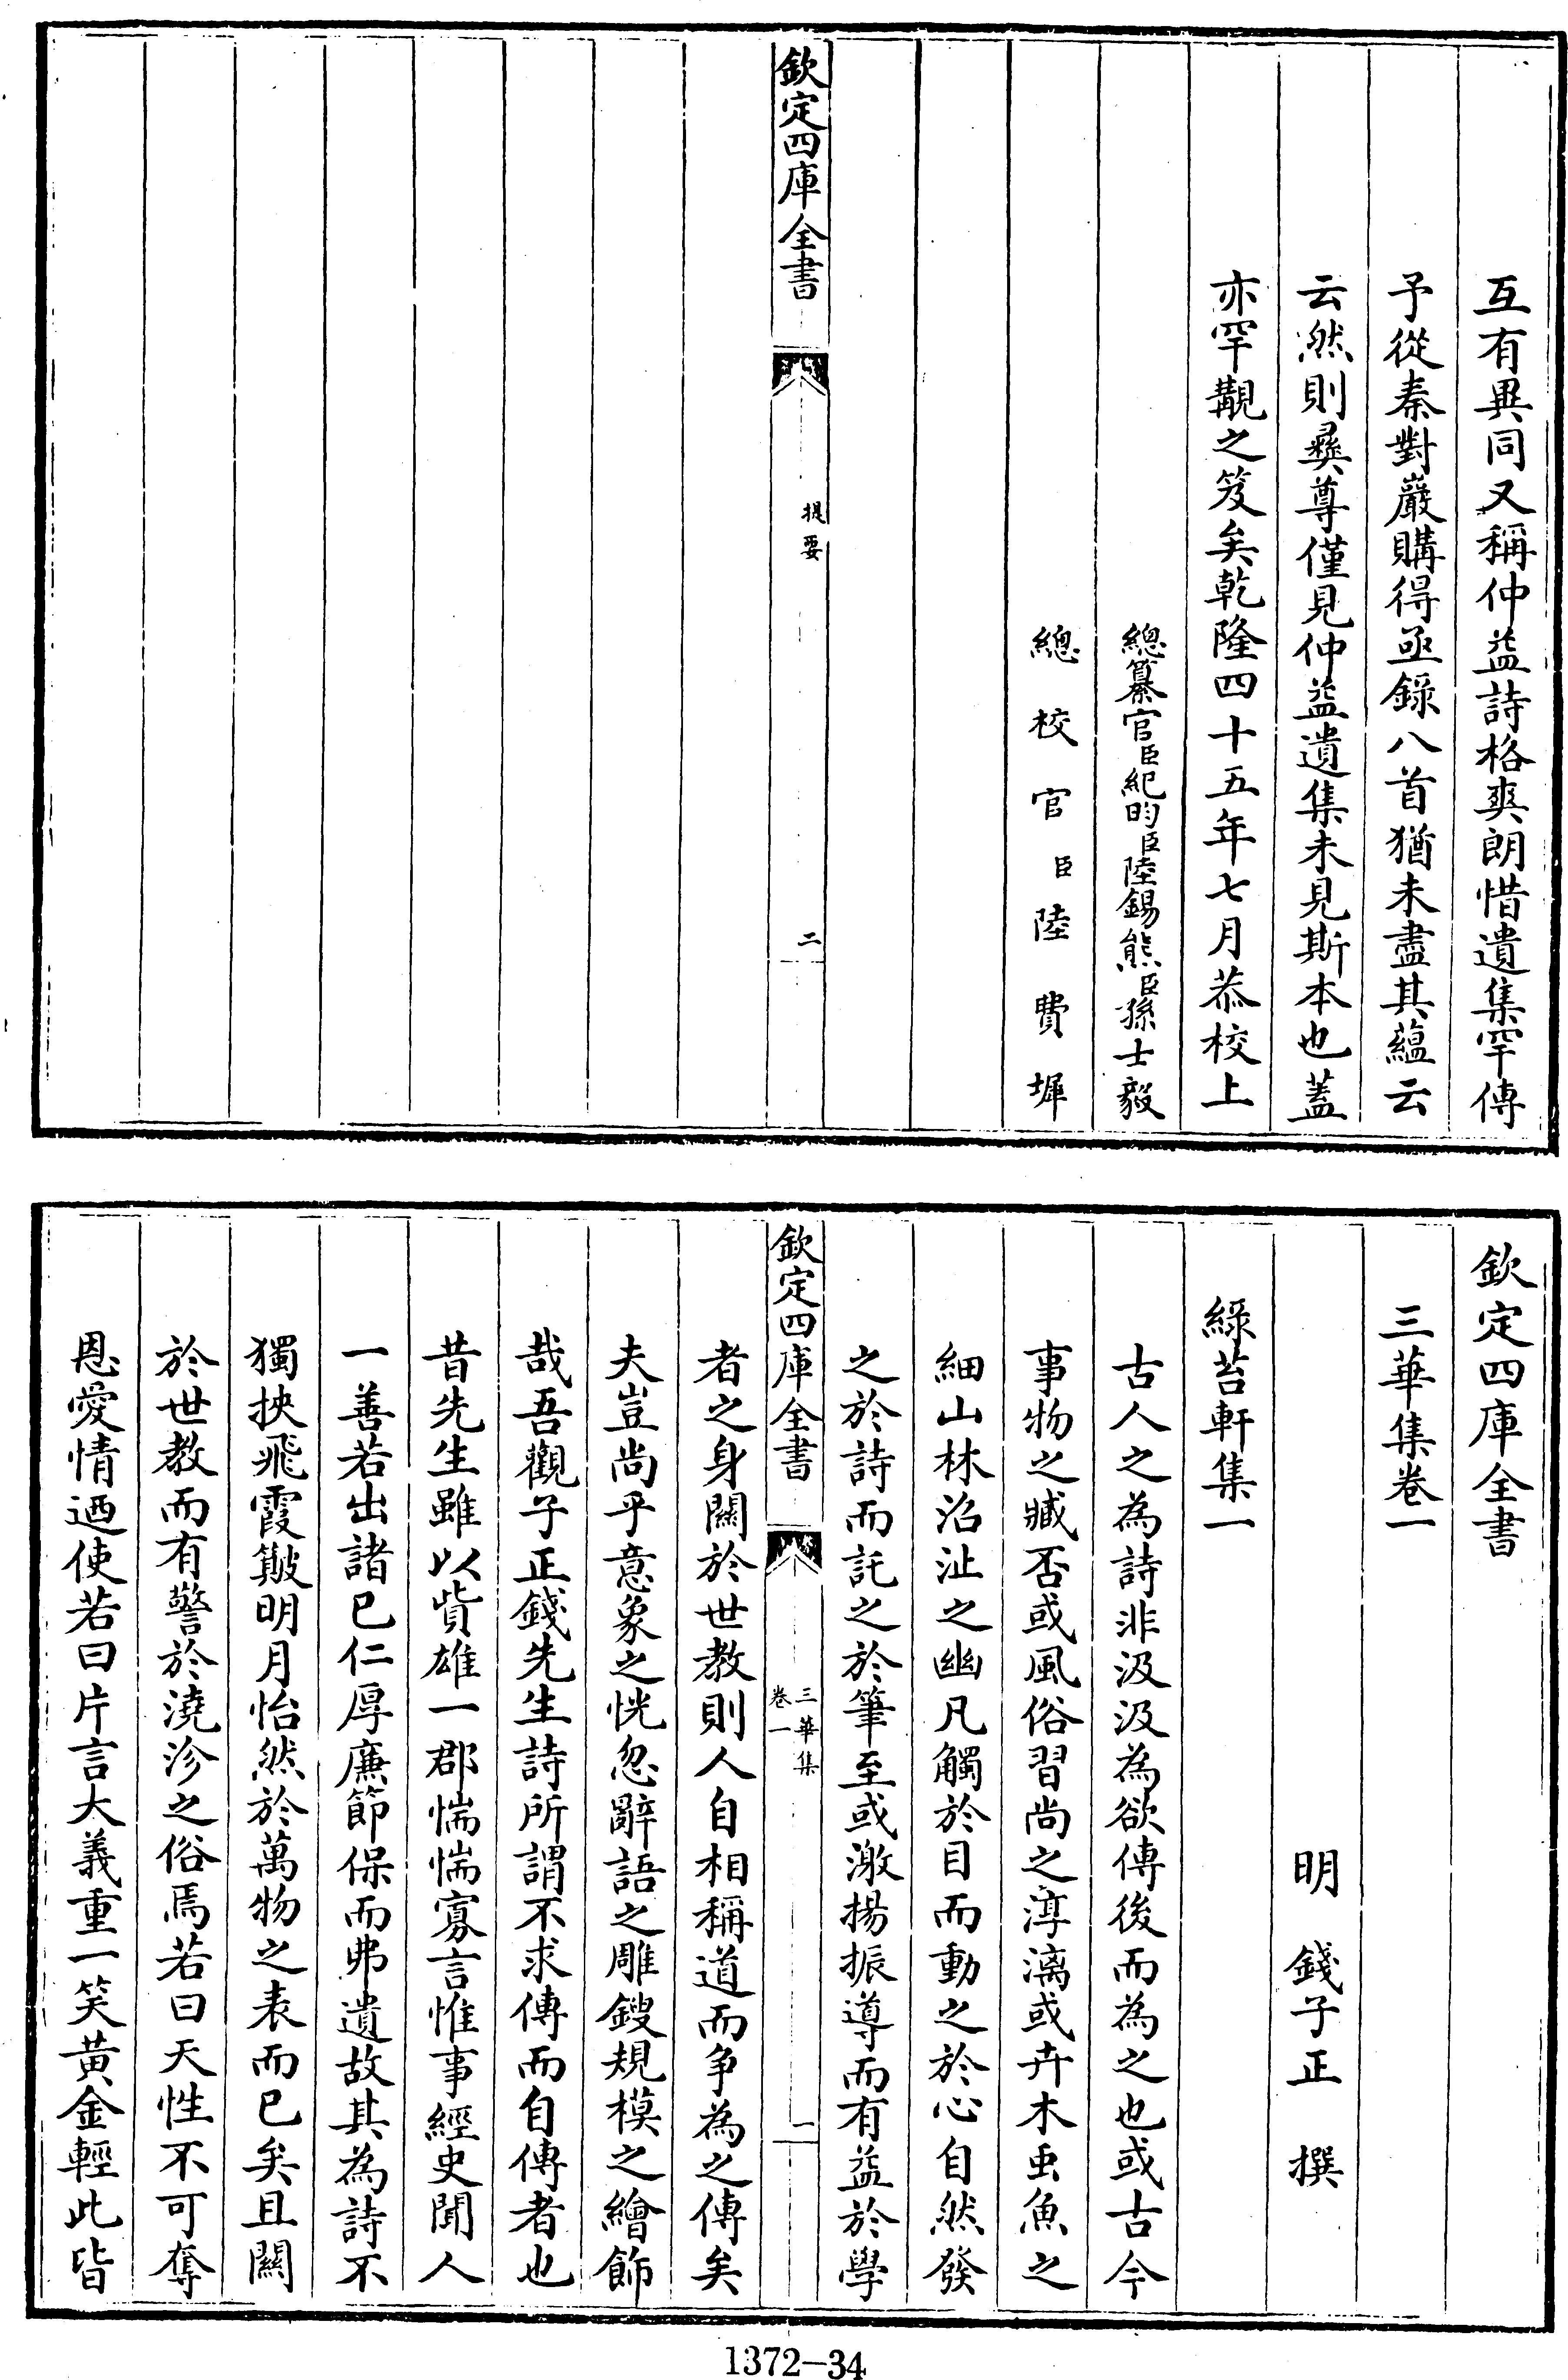 互有異同又稱仲益詩格爽朗惜遺集罕傳
予從秦對巖購得亟錄八首猶未盡其藴云
云然則彝尊僅見仲益遺集未見斯本也蓋
亦罕觀之笈矣乾隆四十五年七月恭校上
總纂官臣紀昀臣陸錫熊臣孫士毅
總校官臣陸費墀
欽定四庫全書
提要
二
欽定四庫全書
三華集卷一
明 錢子正 撰
綠苔軒集一
古人之為詩非汲汲為欲傳後而為之也或古今
事物之臧否或風俗習尚之淳漓或卉木䖝魚之
細山林沼沚之幽凡觸於目而動之於心自然發
之於詩而託之於筆至或激揚振導而有益於學
欽定四庫全書
三華集
卷一
一
者之身關於世教則人自相稱道而爭為之傳矣
夫豈尚乎意象之恍忽辭語之雕鎪規模之繪飾
哉吾觀子正錢先生詩所謂不求傳而自傳者也
昔先生雖以貲雄一郡惴惴寡言惟事經史聞人
一善若出諸已仁厚廉節保而弗遺故其為詩不
獨挾飛霞簸明月怡然於萬物之表而已矣且關
於世教而有警於澆沴之俗焉若曰天性不可奪
恩愛情迺使若曰片言大義重一笑黃金輕此皆
1372-34